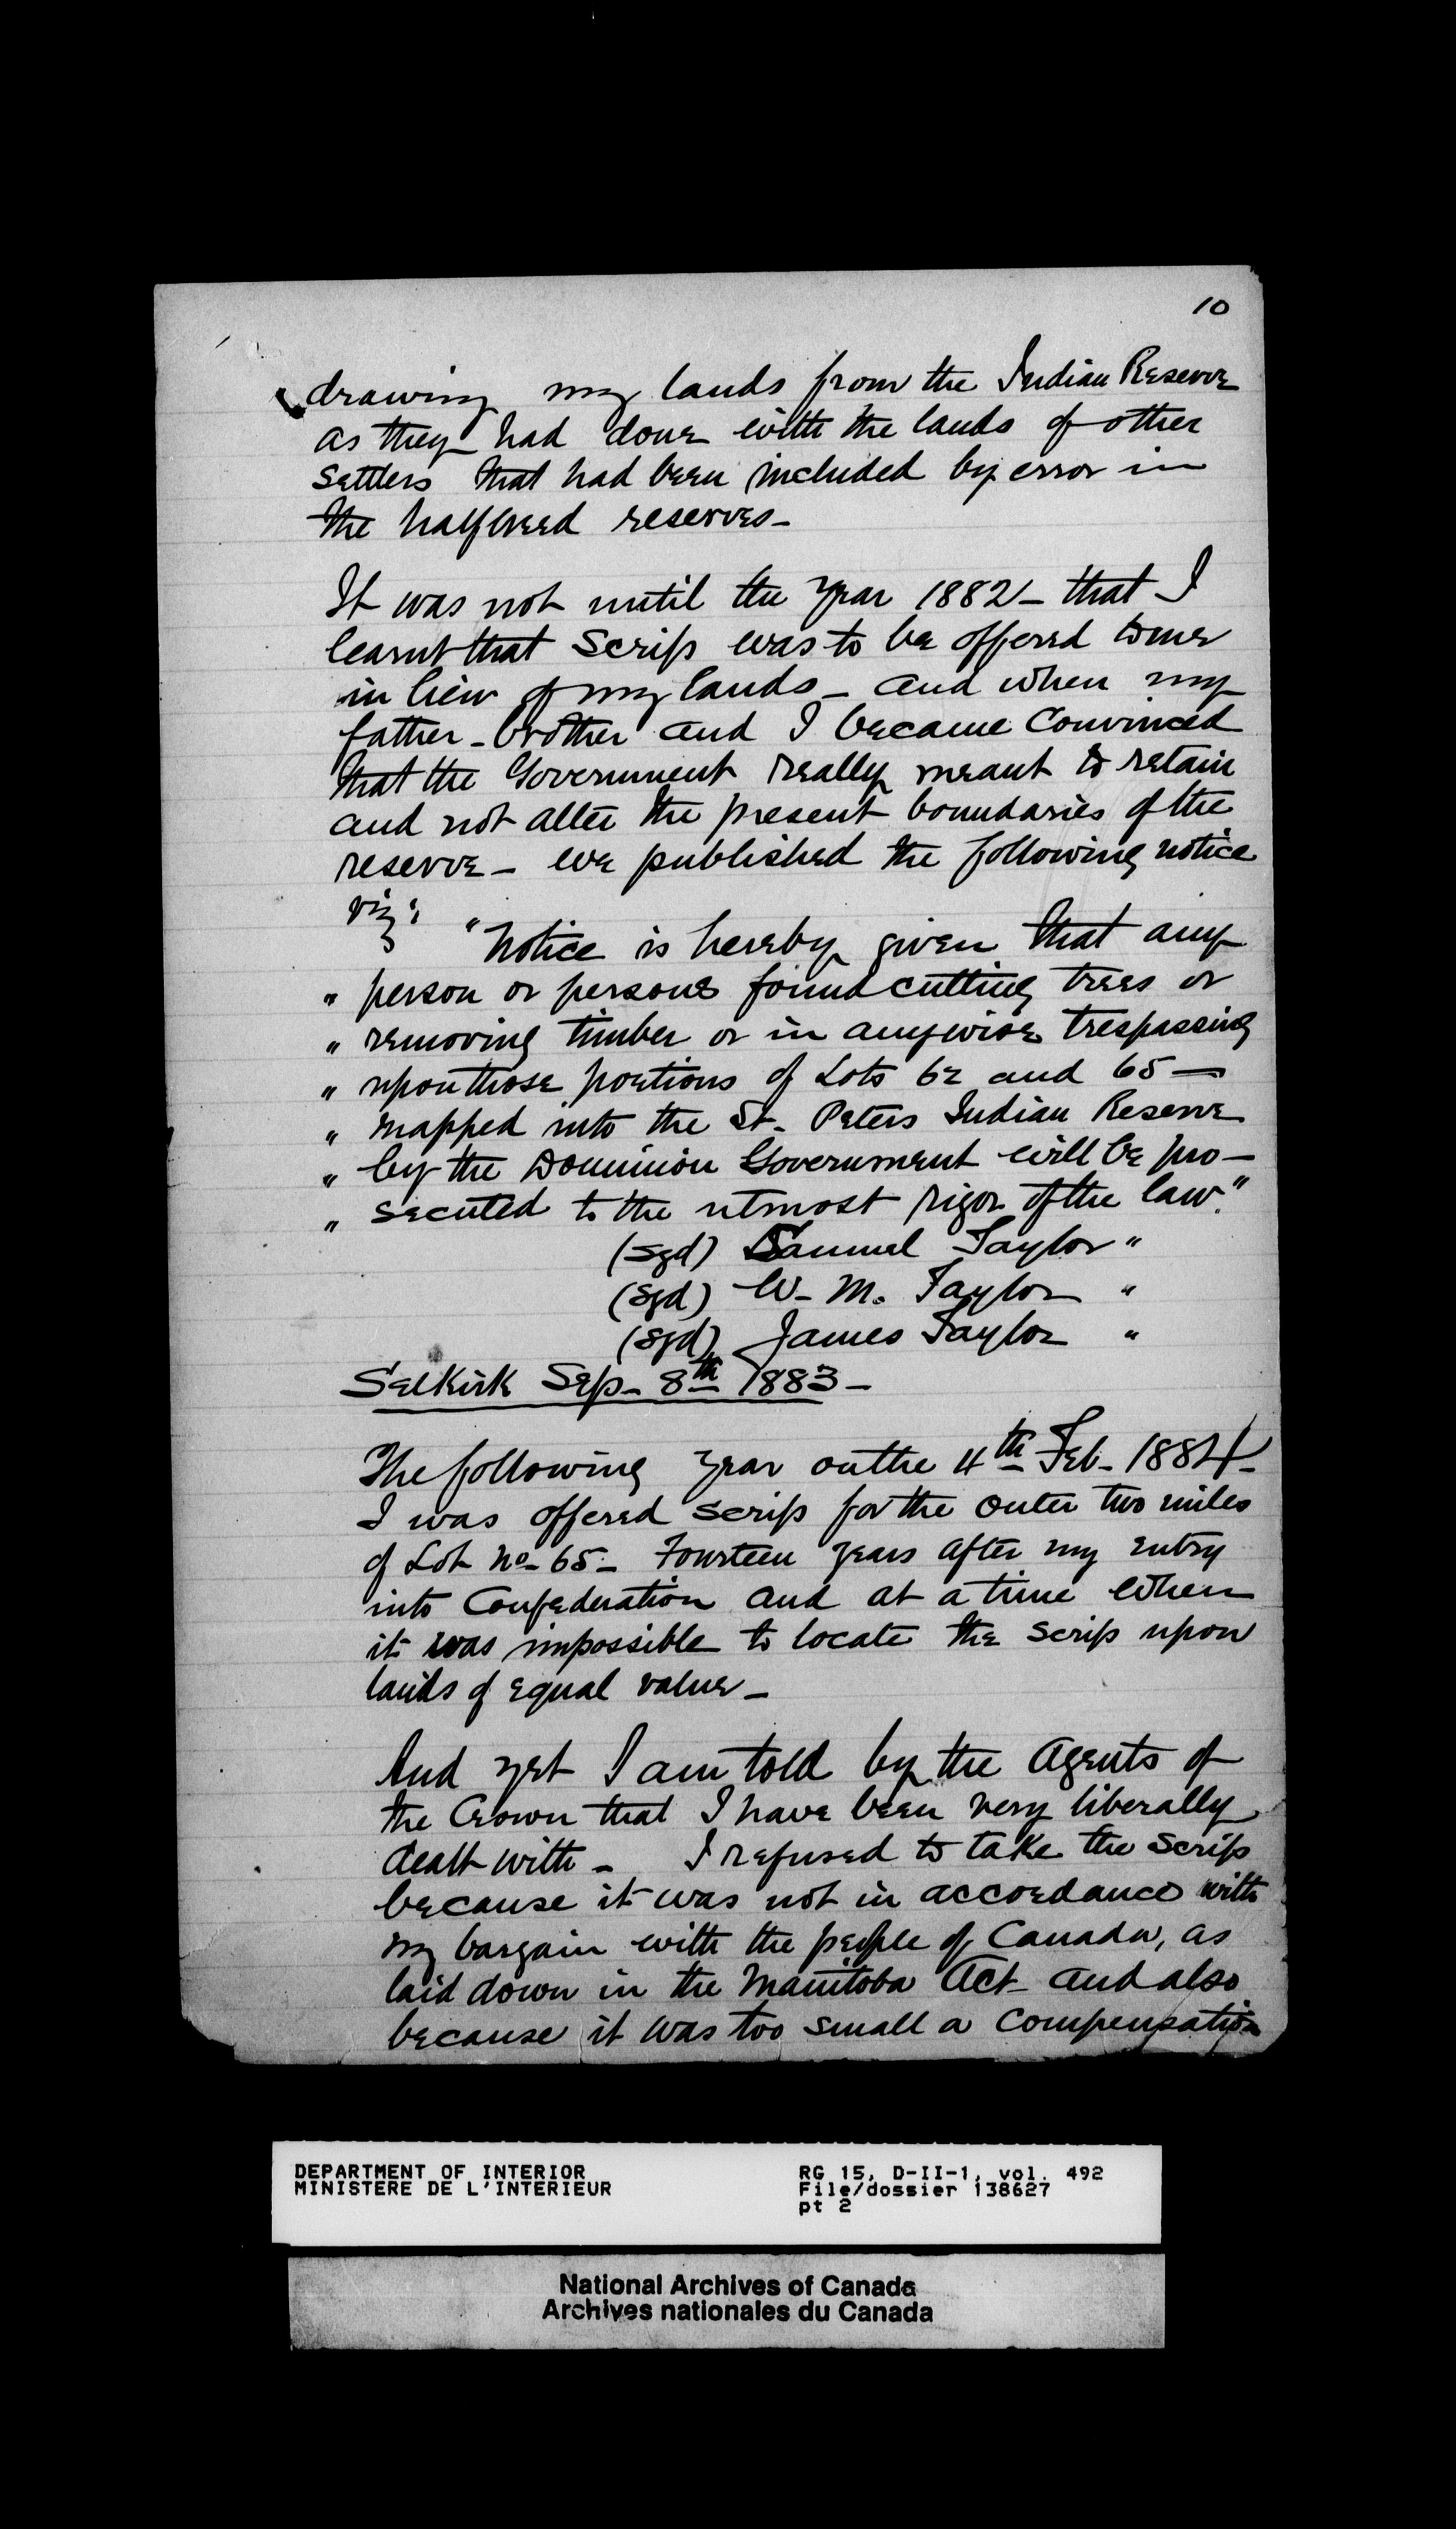 10
drawing my lands from the Indian Reserve
as they had done with the lands of other
settlers that had been included by error in
the halfbreed reserves-
It was not until the year 1882- that I
learnt that Scrip was to be offered to me
in lieu of my lands - and when my
father - brother and I became Convinced
that the Government really meant to retain
and not alter the present boundaries of the
reserve - we published the following notice
viz:
"Notice is hereby given that any
" person or persons found cutting trees or
" removing timber or in anywise trespassing
" upon those portions of Lots 62 and 65 -
" mapped into the St. Peters Indian Reserve
" by the Dominion Government will be pro-
" secuted to the utmost rigor of the law."
(sgd) Samuel Taylor "
(sgd) W. M. Taylor "
(sgd) James Taylor "
Selkirk Sep- 8th 1883-
The following year on the 4th Feb- 1884-
I was offered scrip for the outer two miles
of Lot No- 65- Fourteen years after my entry
into Confederation and at a time when
it was impossible to locate the scrip upon
lands of equal value-
And yet I am told by the Agents of
the Crown that I have been very liberally
dealt with - I refused to take the scrip
because it was not in accordance with
my bargain with the people of Canada, as
laid down in the Manitoba Act- and also
because it was too small a compensation
DEPARTMENT OF INTERIOR
MINISTERE DE L'INTERIEUR
RG 15, D-II-1, vol. 492
File/dossier 138627
pt 2
National Archives of Canada
Archives nationales du Canada